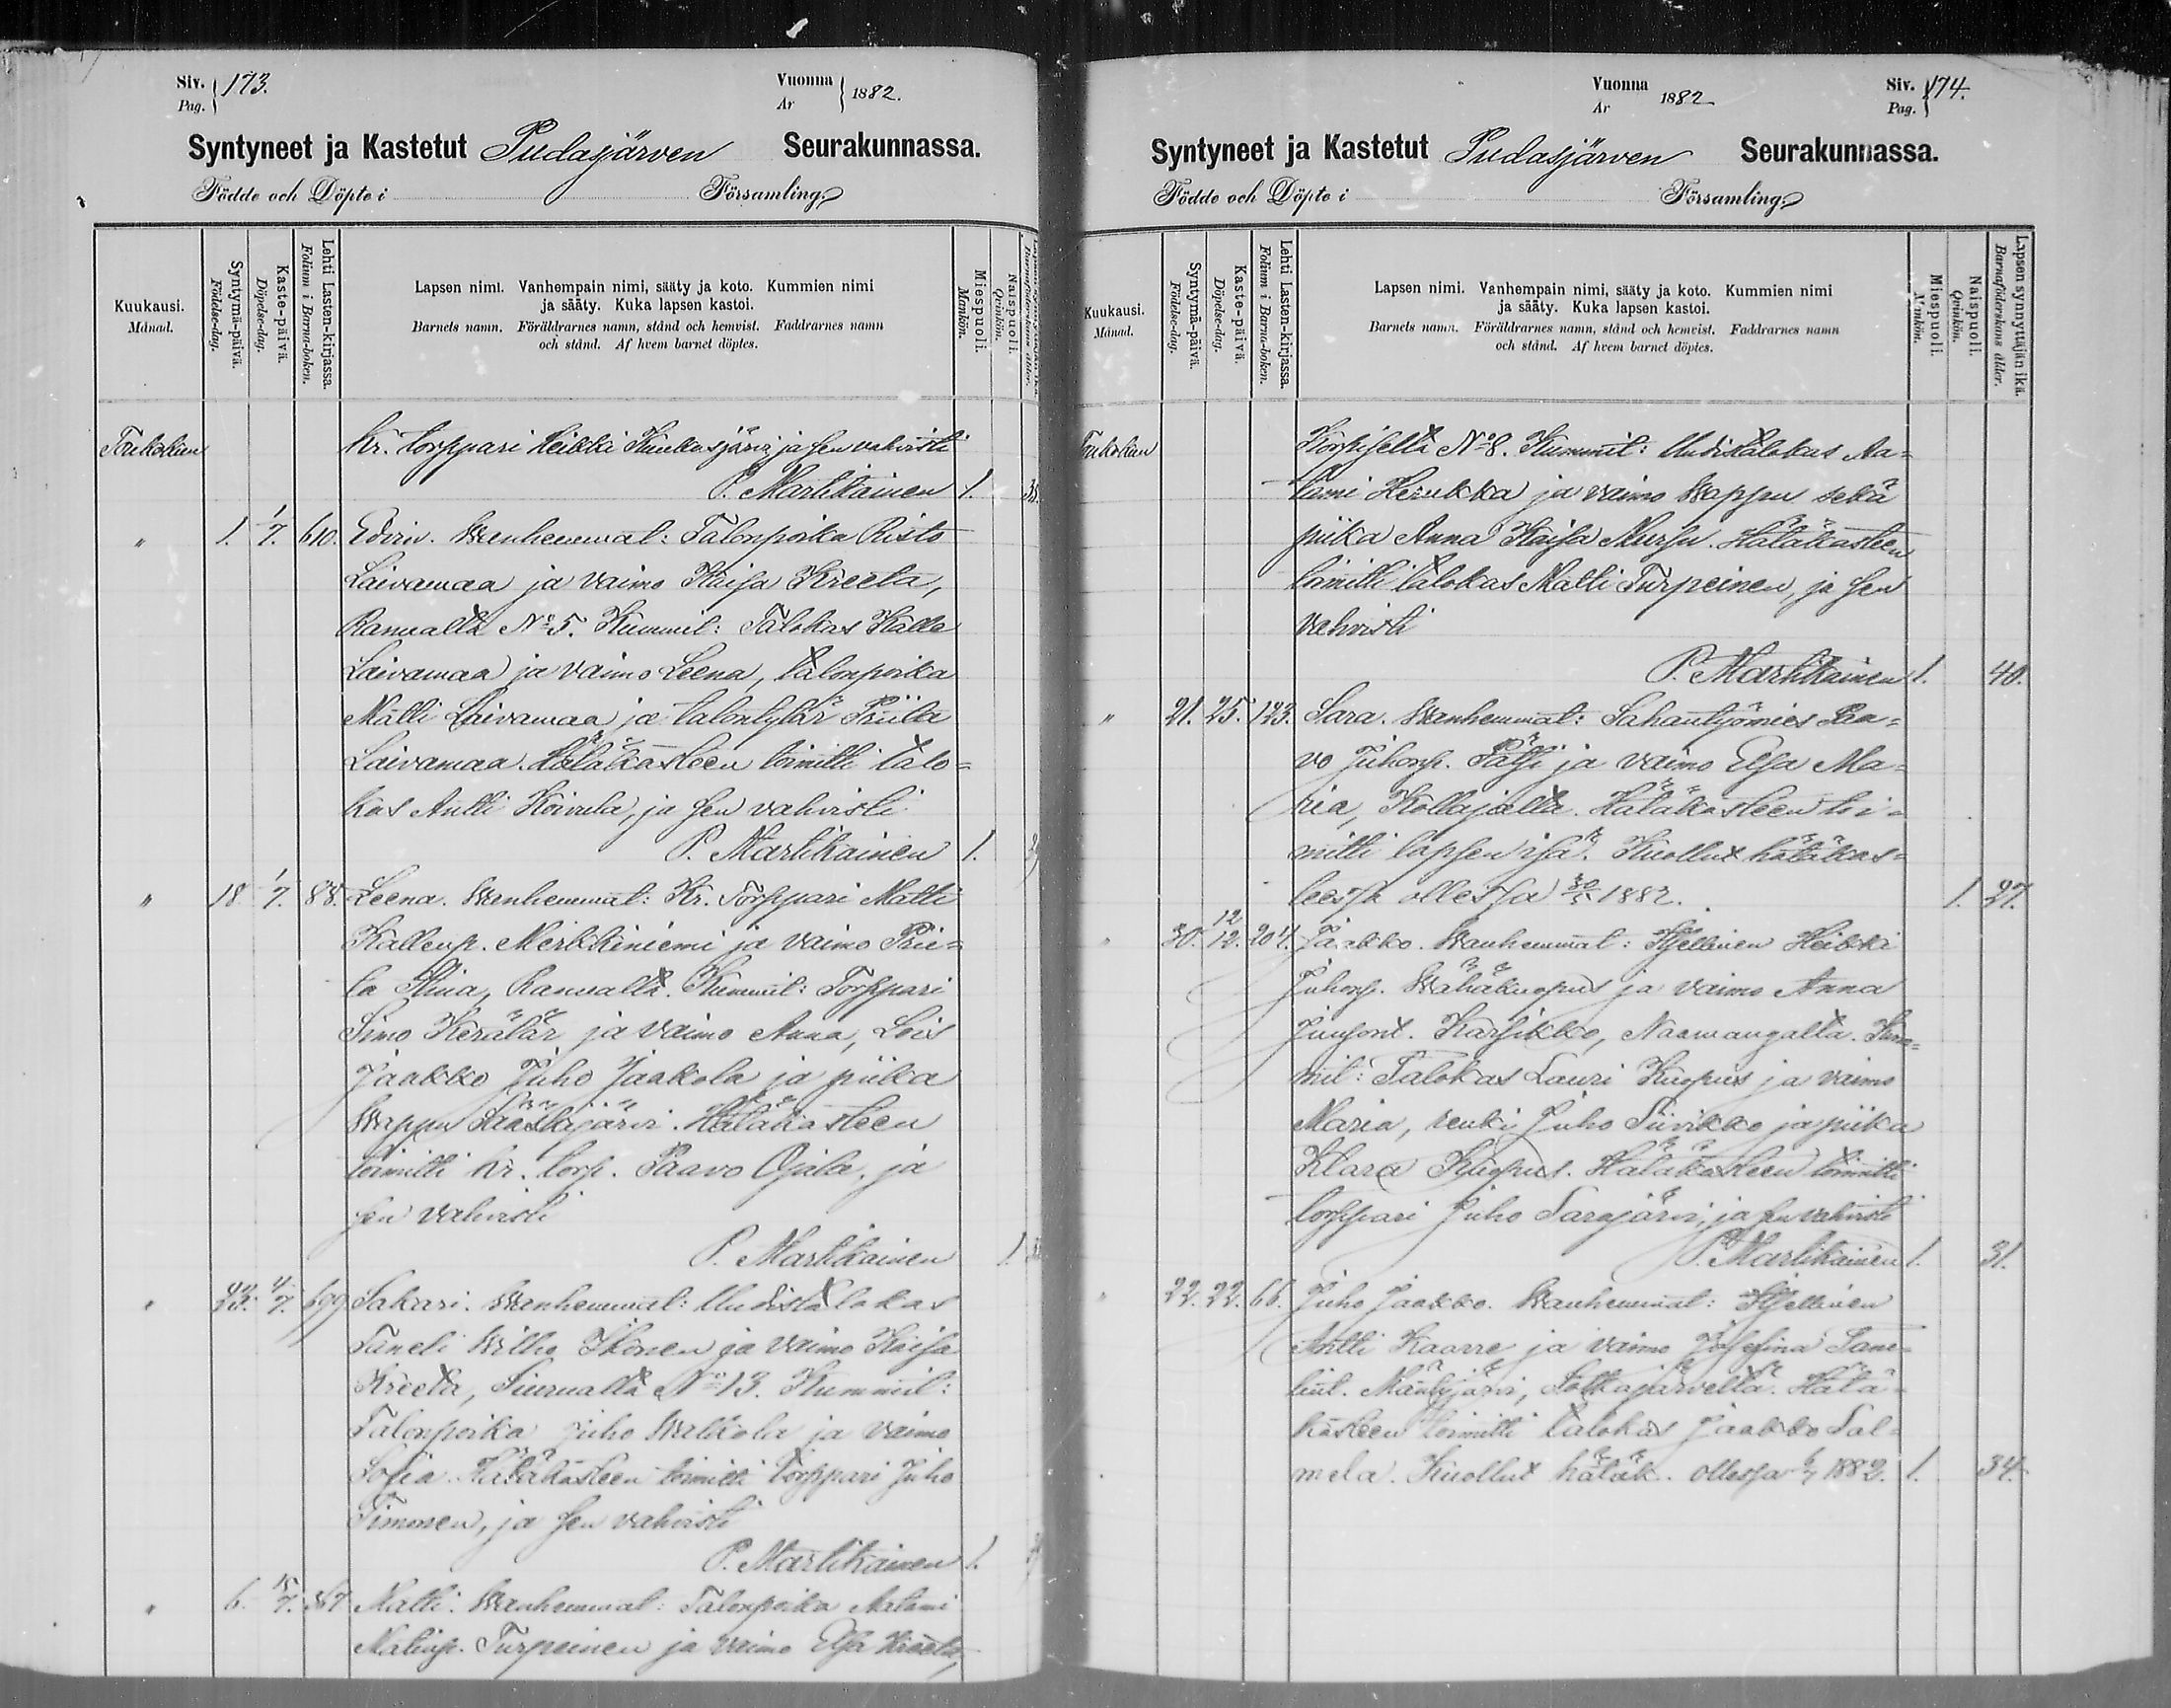 Siv. 173.
Pag.
Vuonna 1882.
Ar
Syntyneet ja Kastetut Pudasjärven Seurakunnassa.
Födde och Döpte i Församling.
Kuukausi.
Månad.
Syntymä-päivä.
Födelse-dag.
Kaste-päivä.
Döpelse-dag.
Lehti Lasten-kirjassa.
Folium i Barna-boken.
Lapsen nimi. Vanhempain nimi, sääty ja koto. Kummien nimi
ja sääty. Kuka lapsen kastoi.
Barnets namn. Föräldrarnes namn, stånd och hemvist. Faddrarnes namn
och stånd. Af hvem barnet döptes.
Miespuoli.
Mankön.
Naispuoli.
Qvinkön.
Toukokuu Kr. torppari Heikki Kuukasjärvi, ja sen vahvisti
P. Martikainen 1.
" 1. 1/7. 610. Edvin. Wanhemmat: Talonpoika Risto
Laivamaa ja vaimo Kaisa Kreeta,
Ranualta No 5. Kummit: Talokas Kalle
Laivamaa ja vaimo Leena, talonpoika
Matti Laivamaa ja talontytär Priita
Laivamaa. Hätäkasteen toimitti talo=
kas Antti Koivula, ja sen vahvisti
P. Martikainen 1.
" 18. 1/7. 88. Leena. Wanhemmat: Kr. Torppari Matti
Kallenp. Merkkiniemi ja vaimo Prii=
ta Stiina, Ranualta. Kummit: Torppari
Simo Kerälär ja vaimo Anna, Lois
Jaakko Juho Jaakola ja piika
Wappu Sääskijärvi. Hätäkasteen
toimitti kr. torp. Paavo Ojala, ja
sen vahvisti
P. Martikainen 1.
" 23. 4/7. 699 Sakari. Wanhemmat: Uudistalokas
Taneli Wilho Ikonen ja vaimo Kaisa
Kreeta, Siurualta No 13. Kummit:
Talonpoika Juho Walkola ja vaimo
Sofia. Hätäkasteen toimitti torppari Juho
Timonen, ja sen vahvisti
P. Martikainen 1.
" 6. 15/7. 367 Matti. Wanhemmat: Talonpoika Aatami
Matinp. Turpeinen ja vaimo Elsa Kreeta,
Vuonna 1882
Ar
Siv. 174.
Pag.
Syntyneet ja Kastetut Pudasjärven Seurakunnassa.
Födde och Döpte i Församling.
Kuukausi.
Månad.
Syntymä-päivä.
Födelse-dag.
Kaste-päivä.
Döpelse-dag.
Lehti Lasten-kirjassa.
Folium i Barna-boken.
Lapsen nimi. Vanhempain nimi, sääty ja koto. Kummien nimi
ja sääty. Kuka lapsen kastoi.
Barnets namn. Föräldrarnes namn, stånd och hemvist. Faddrarnes namn
och stånd. Af hvem barnet döptes.
Miespuoli.
Mankön.
Naispuoli.
Qvinkön.
Lapsen synnyttäjän ikä.
Barnaföderskans ålder.
Toukokuu Korpisella No 8. Kummit: Uudistalokas Aa=
tami Herukka ja vaimo Wappu sekä
piika Anna Kaisa Mursu. Hätäkasteen
toimitti talokas Matti Turpeinen, ja sen
vahvisti
P. Martikainen 1. 40.
" 21. 25. 123. Sara. Wanhemmat: Sahantyömies Paa=
vo Juhonp. Pätsi ja vaimo Elsa Ma=
ria, Kollajalta. Hätäkasteen toi=
mitti lapsen isä. Kuollut hätäkas=
teessa ollessa 30/5 1882. 1. 27.
" 30. 12/12. 207. Jaakko. Wanhemmat: Itsellinen Heikki
Juhonp. Wähäkuopus ja vaimo Anna
Juusont. Karsikko, Naamangalta. Kum=
mit: Talokas Lauri Kuopus ja vaimo
Maria, renki Juho Siivikko ja piika
Klara Kuopus. Hätäkasteen toimitti
torppari Juho Sarajärvi, ja sen vahvisti
P. Martikainen 1. 31.
" 22. 22. 66. Juho Jaakko. Wanhemmat: Itsellinen
Antti Kaarre ja vaimo Josefina Tane=
lint. Mäntyjärvi, Sotkajärveltä. Hätä=
kasteen toimitti talokas Jaakko Sal=
mela. Kuollut hätäk. ollessa 6/7 1882. 1. 34.